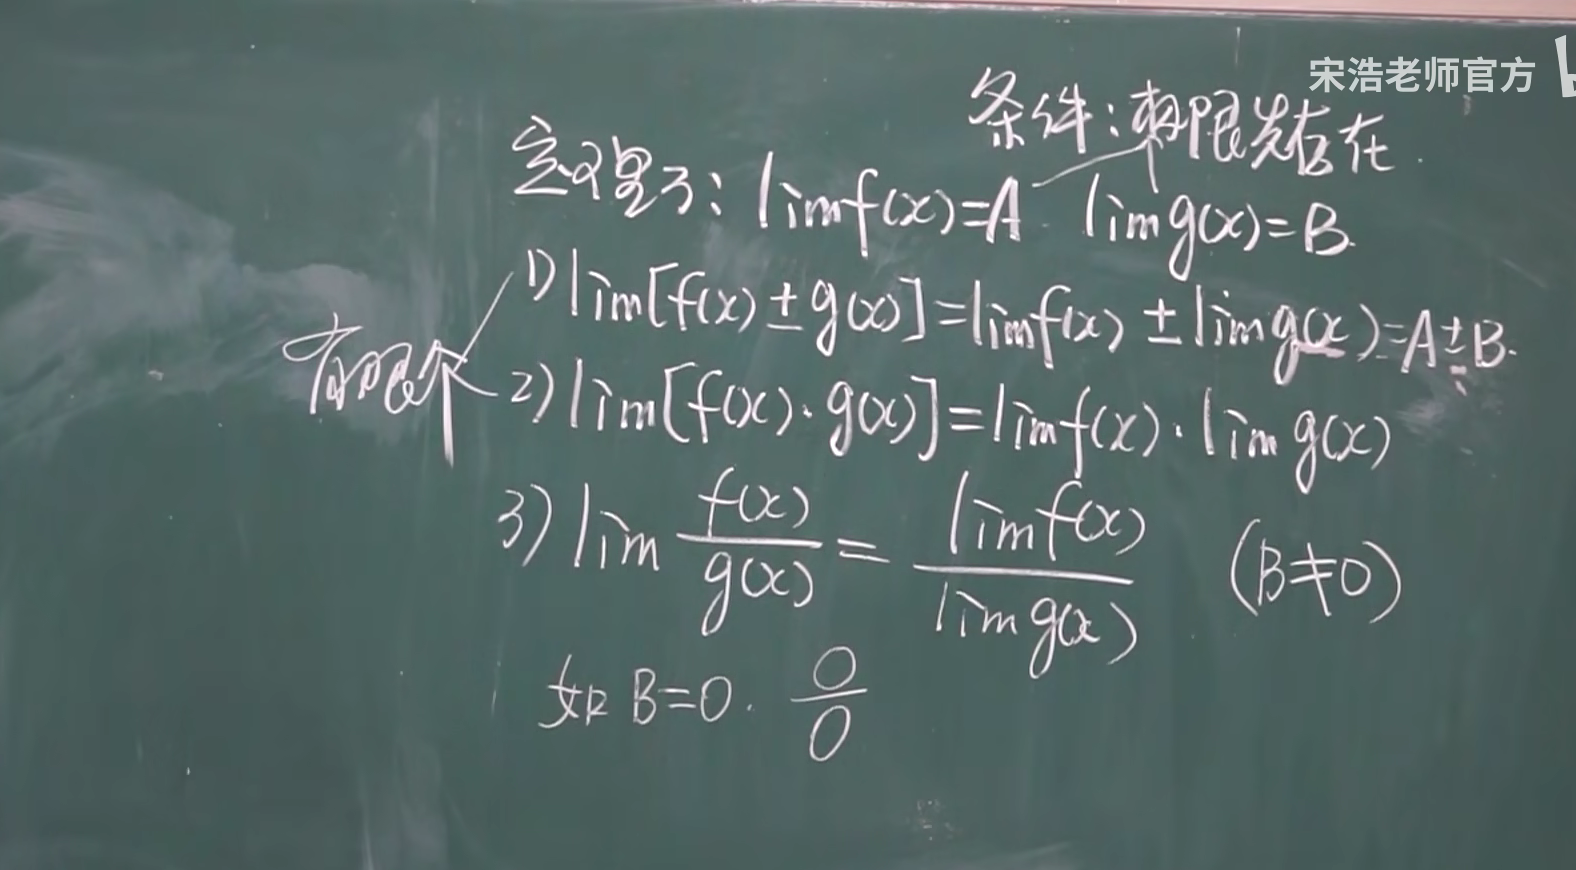 宋浩老师官方
条件：极限先存在
定理3: lim f(x)=A lim g(x)=B.
1) lim[f(x)±g(x)]=lim f(x)±lim g(x)=A±B.
有限个
2) lim[f(x)·g(x)]=lim f(x)·lim g(x)
3) lim f(x)/g(x) = lim f(x)/lim g(x) (B≠0)
如B=0. 0/0